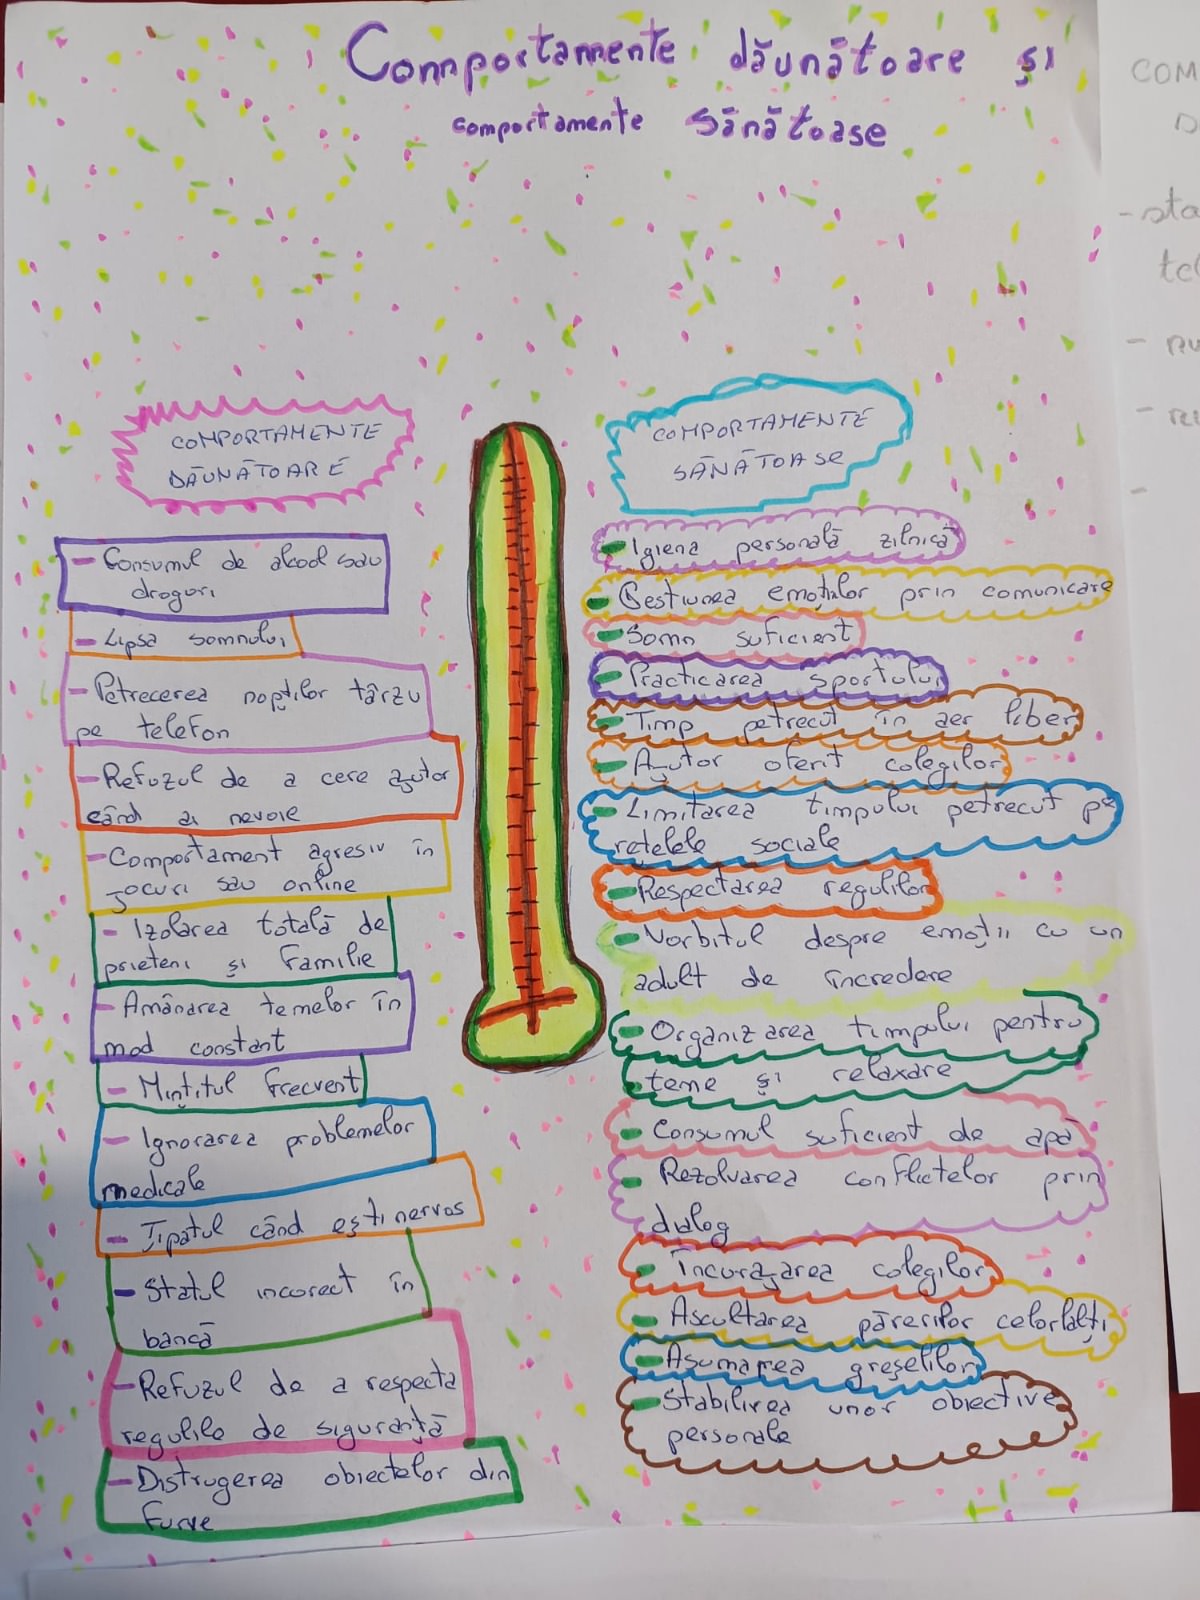 Comportamente dăunătoare și
comportamente sănătoase
COMPORTAMENTE
DĂUNĂTOARE
- Consumul de alcool sau
droguri
- Lipsa somnului
- Petrecerea nopților târzu
pe telefon
- Refuzul de a cere ajutor
când ai nevoie
- Comportament agresiv în
jocuri sau online
- Izolarea totală de
prieteni și familie
- Amânarea temelor în
mod constant
- Mințitul frecvent
- Ignorarea problemelor
medicale
- Țipatul când ești nervos
- Statul incorect în
bancă
- Refuzul de a respecta
regulile de siguranță
- Distrugerea obiectelor din
furie
COMPORTAMENTE
SĂNĂTOASE
- Igiena personală zilnică
- Gestiunea emoțiilor prin comunicare
- Somn suficient
- Practicarea sportului
- Timp petrecut în aer liber
- Ajutor oferit colegilor
- Limitarea timpului petrecut pe
rețelele sociale
- Respectarea regulilor
- Vorbitul despre emoții cu un
adult de încredere
- Organizarea timpului pentru
teme și relaxare
- Consumul suficient de apă
- Rezolvarea conflictelor prin
dialog
- Încurajarea colegilor
- Ascultarea părerilor celorlalți
- Asumarea greșelilor
- Stabilirea unor obiective
personale
COM
- sta